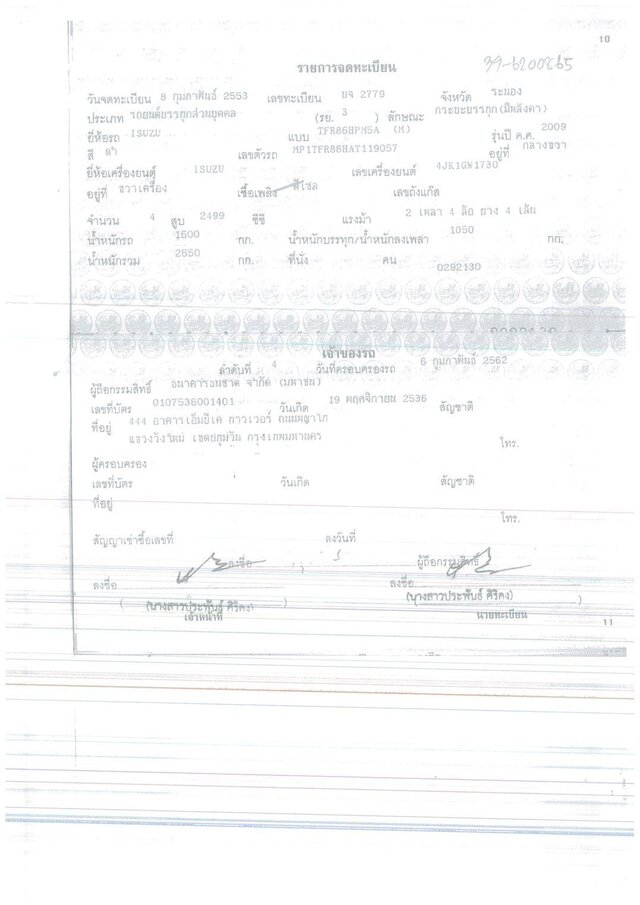 10
39-6200865
รายการจดทะเบียน
วันจดทะเบียน 8 กุมภาพันธ์ 2553 เลขทะเบียน บจ 2779 จังหวัด ระนอง
ประเภท รถยนต์บรรทุกส่วนบุคคล (รย. 3 ) ลักษณะ กระบะบรรทุก(มีหลังคา)
ยี่ห้อรถ ISUZU แบบ TFR86HPM5A (M) รุ่นปี ค.ศ. 2009
สี ดำ เลขตัวรถ MP1TFR86HAT119057 อยู่ที่ กลางขวา
ยี่ห้อเครื่องยนต์ ISUZU เลขเครื่องยนต์ 4JK1GW1730
อยู่ที่ ขวาเครื่อง เชื้อเพลิง ดีเซล เลขถังแก๊ส
จำนวน 4 สูบ 2499 ซีซี แรงม้า 2 เพลา 4 ล้อ ยาง 4 เส้น
น้ำหนักรถ 1600 กก. น้ำหนักบรรทุก/น้ำหนักลงเพลา 1050 กก.
น้ำหนักรวม 2650 กก. ที่นั่ง คน
0292130
เจ้าของรถ
ลำดับที่ 4 วันที่ครอบครองรถ 6 กุมภาพันธ์ 2562
ผู้ถือกรรมสิทธิ์ ธนาคารธนชาต จำกัด (มหาชน)
เลขที่บัตร 0107536001401 วันเกิด 19 พฤศจิกายน 2536 สัญชาติ
ที่อยู่ 444 อาคารเอ็มบีเค ทาวเวอร์ ถนนพญาไท
แขวงวังใหม่ เขตปทุมวัน กรุงเทพมหานคร โทร.
ผู้ครอบครอง
เลขที่บัตร วันเกิด สัญชาติ
ที่อยู่
โทร.
สัญญาเช่าซื้อเลขที่ ลงวันที่
ลงชื่อ ผู้ถือกรรมสิทธิ์
ลงชื่อ ลงชื่อ
(นางสาวประพันธ์ ศิริคง) (นางสาวประพันธ์ ศิริคง)
เจ้าหน้าที่ นายทะเบียน
11